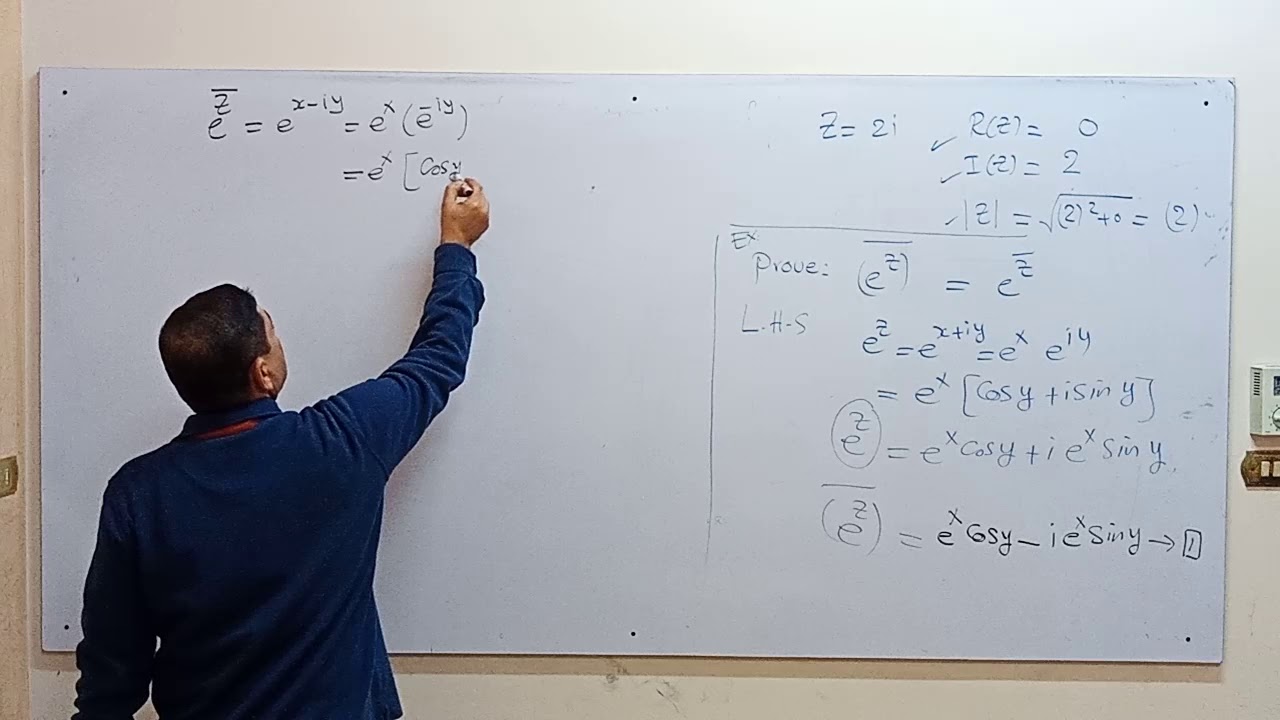 e^z̅ = e^(x-iy) = e^x (e^-iy)
= e^x [Cosy
Z = 2i R(Z) = 0
I(Z) = 2
|Z| = √((2)²+0) = (2)
Ex
Prove: \overline{(e^z)} = e^z̅
L.H-S
e^z = e^(x+iy) = e^x e^iy
= e^x [Cosy + i Sin y]
e^z = e^x Cosy + i e^x Sin y
\overline{(e^z)} = e^x Cosy - i e^x Sin y → 1